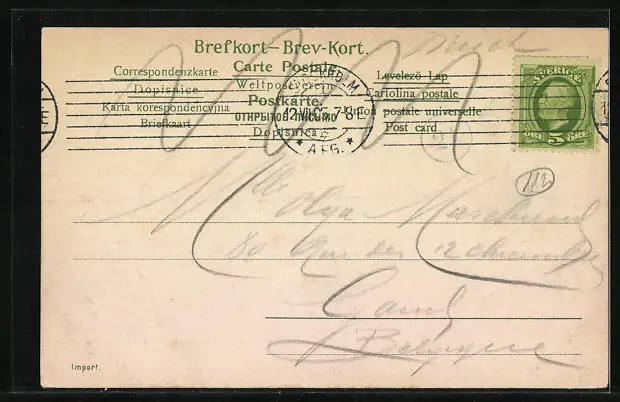 Brefkort–Brev-Kort.
Carte Postale
Correspondenzkarte
Weltpostverein
Levelező Lap
Dopisnice
Postkarte
Cartolina postale
Karta korespondencyjna
ОТКРЫТОЕ ПИСЬМО
Union postale universelle
Briefkaart
Dopisnica
Post card
12.VII.05. 7-8 F
* AFG. *
SVERIGE
ÖRE 5 ÖRE
112
Mlle Olga
80 Rue des 12 Chambres
Gand
Belgique
Import.